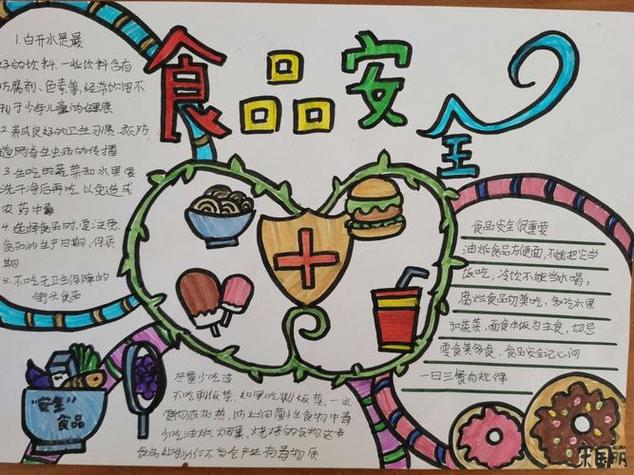 食品安全
1.白开水是最
好的饮料，一些饮料含有
防腐剂、色素等，经常饮用不
利于少年儿童的健康
2.养成良好的卫生习惯，预防
道寄生虫病的传播
3.生吃的蔬菜和水果要
洗干净后再吃，以免造成
农药中毒
4.选择食品时，要注意
食品的生产日期、保质
期
5.不吃无卫生保障的
街头食品
食品安全很重要
油炸食品方便面，不能把它当
饭吃，冷饮不能当水喝；
腐烂食品切莫吃，多吃水果
和蔬菜，面食米饭为主食，切忌
零食莫多食，食品安全记心间
一日三餐有规律
"安全"
食品
尽量少吃或
不吃剩饭菜，如果吃剩饭菜，一定
要彻底加热，防止细菌性食物中毒
少吃油炸、烟熏、烧烤的食物，这类
食品如制作不当会产生有毒物质